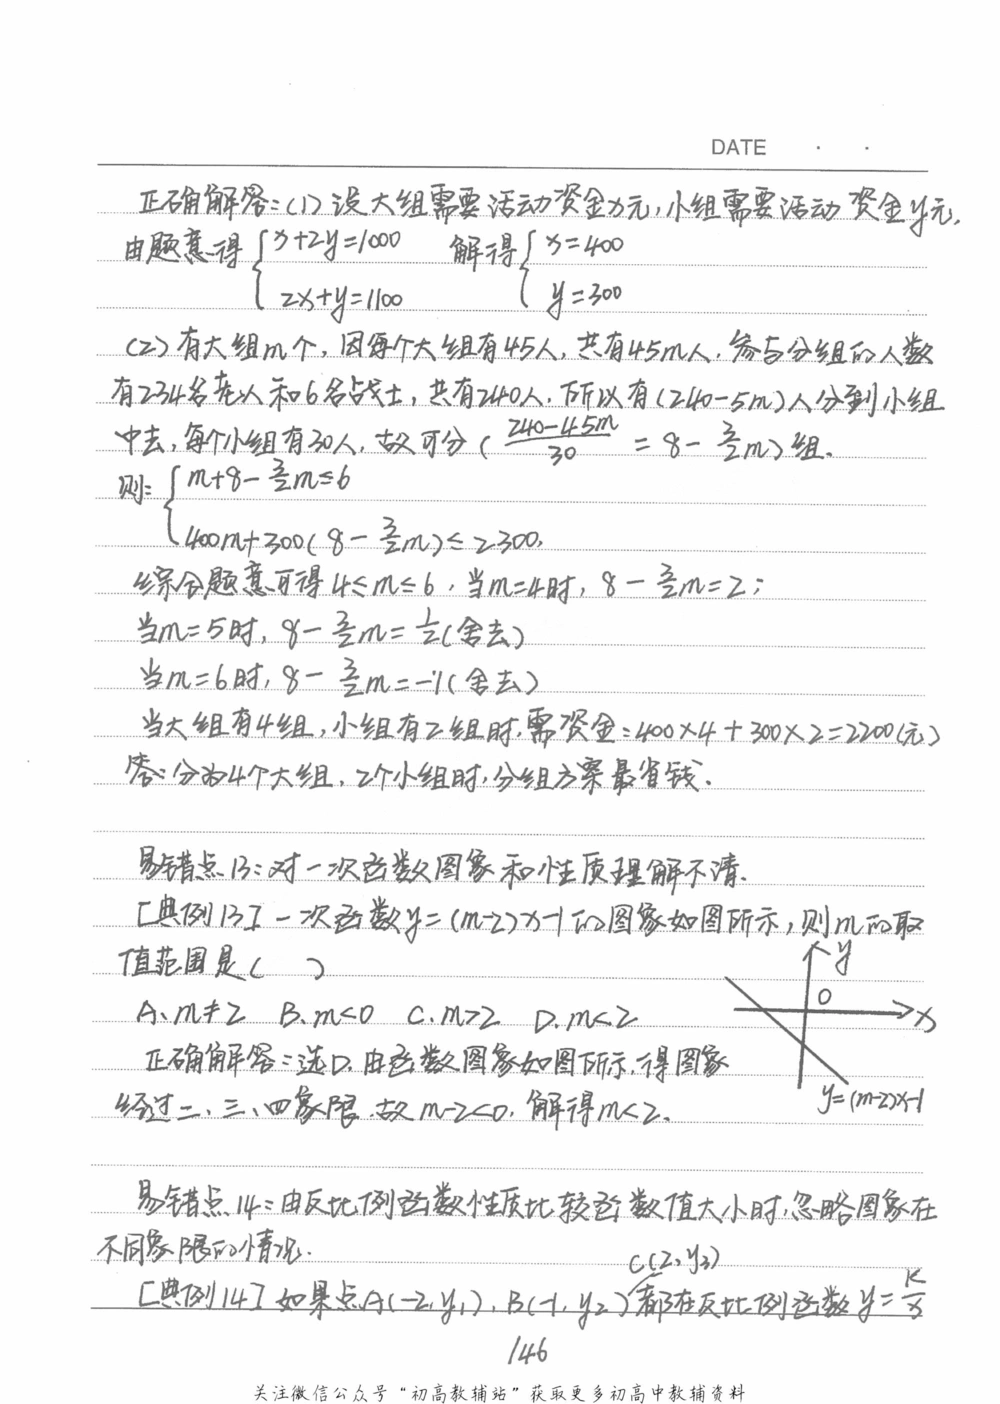 DATE · ·
正确解答:(1)设大组需要活动资金x元,小组需要活动资金y元,
由题意得{x+2y=1000 解得{x=400
2x+y=1100 y=300
(2)有大组m个,因每个大组有45人,共有45m人,参与分组的人数
有234名老人和6名战士,共有240人,所以有(240-5m)人分到小组
中去,每个小组有30人,故可分((240-45m)/30=8-3/2m)组.
则:{m+8-3/2m≤6
400m+300(8-3/2m)≤2300,
综合题意可得4≤m≤6,当m=4时,8-3/2m=2;
当m=5时,8-3/2m=1/2(舍去)
当m=6时,8-3/2m=-1(舍去)
当大组有4组,小组有2组时,需资金:400×4+300×2=2200(元)
答:分为4个大组,2个小组时,分组方案最省钱.
易错点13:对一次函数图象和性质理解不清.
[典例13]一次函数y=(m-2)x-1的图象如图所示,则m的取
值范围是( )
y
0
x
A.m≠2 B.m<0 C.m>2 D.m<2
正确解答:选D.由函数图象如图所示,得图象
经过二、三、四象限,故m-2<0,解得m<2.
y=(m-2)x-1
易错点14:由反比例函数性质比较函数值大小时,忽略图象在
不同象限的情况.
C(2,y3)
[典例14]如果点A(-2,y1),B(-1,y2)都在反比例函数y=k/x
146
关注微信公众号“初高教辅站”获取更多初高中教辅资料